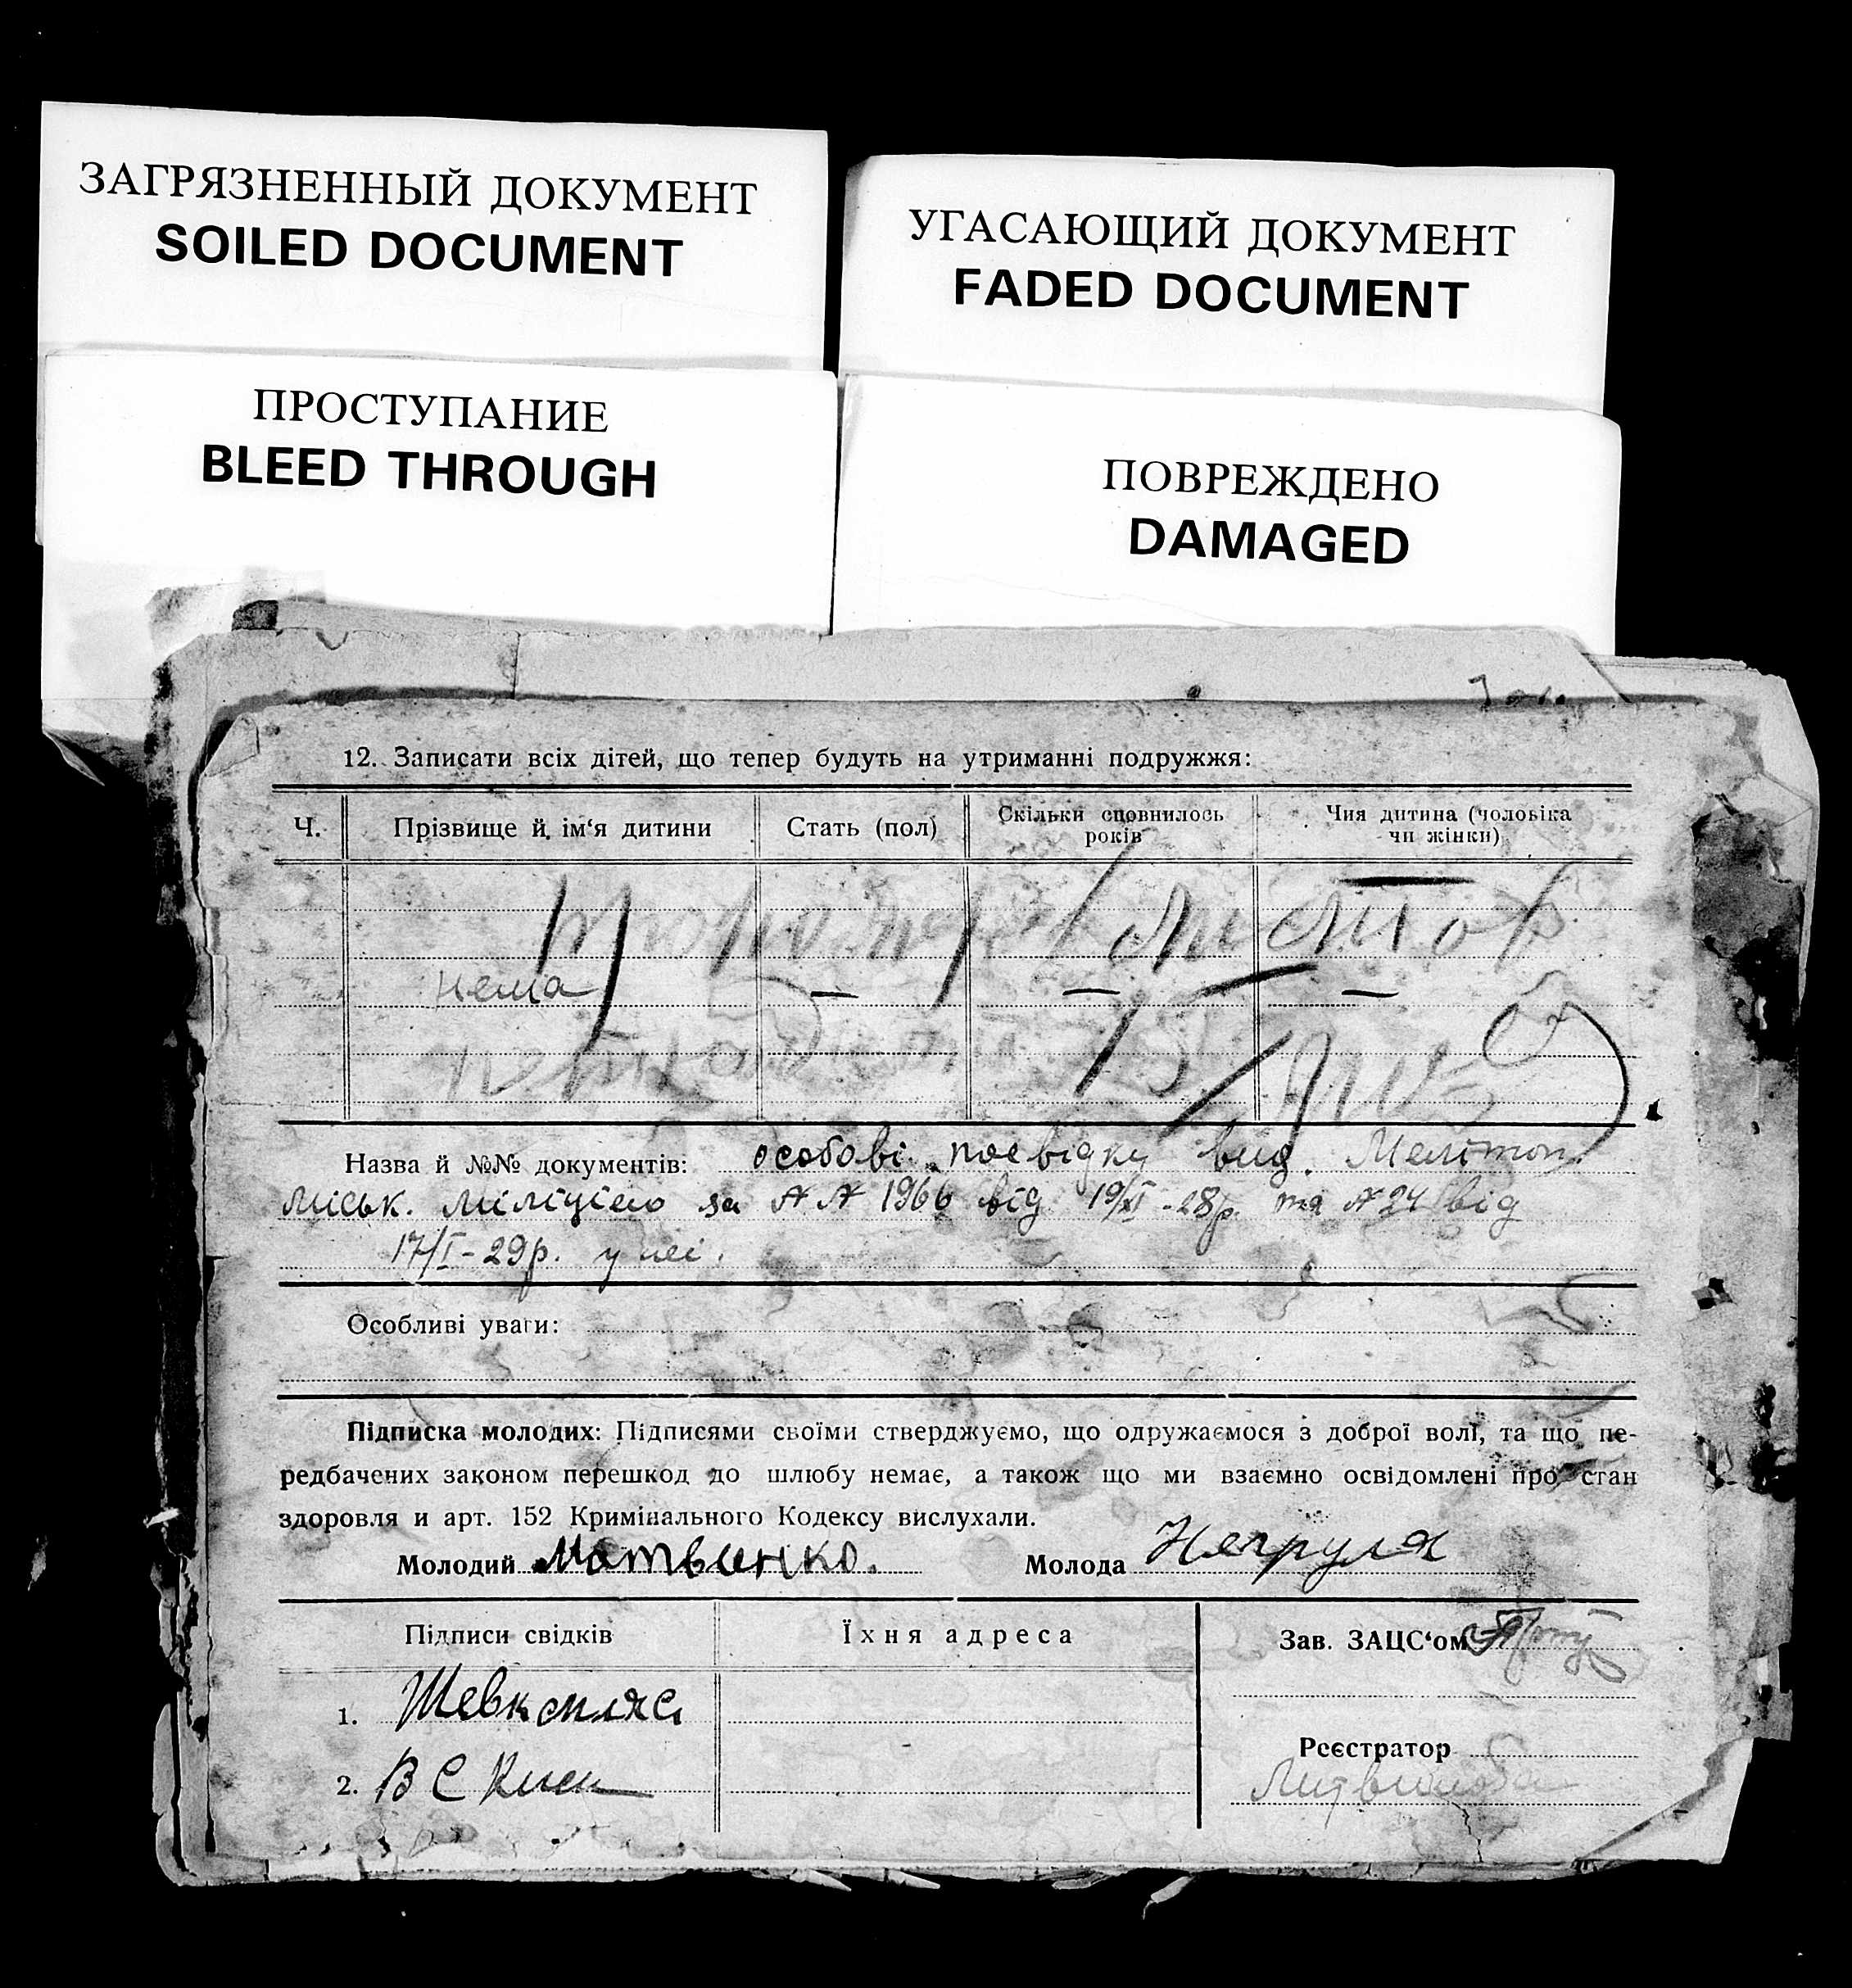 ЗАГРЯЗНЕННЫЙ ДОКУМЕНТ
SOILED DOCUMENT
УГАСАЮЩИЙ ДОКУМЕНТ
FADED DOCUMENT
ПРОСТУПАНИЕ
BLEED THROUGH
ПОВРЕЖДЕНО
DAMAGED
12. Записати всіх дітей, що тепер будуть на утриманні подружжя:
Ч. Прізвище й ім‘я дитини Стать (пол) Скільки сповнилось років Чия дитина (чоловіка чи жінки)
нема — — —
Назва й №№ документів: особові посвідки вид. Мелітоп.
міськ. міліцією за №№ 1966 від 19/XI-28р. та № 24 від
17/I-29р.
Особливі уваги:
Підписка молодих: Підписями своїми стверджуємо, що одружаємося з доброї волі, та що пе-
редбачених законом перешкод до шлюбу немає, а також що ми взаємно освідомлені про стан
здоровля и арт. 152 Кримінального Кодексу вислухали.
Молодий Матвиенко. Молода Негруля
Підписи свідків Їхня адреса Зав. ЗАЦС‘ом
1.
Реєстратор
2. В С Кисл
Литвинова